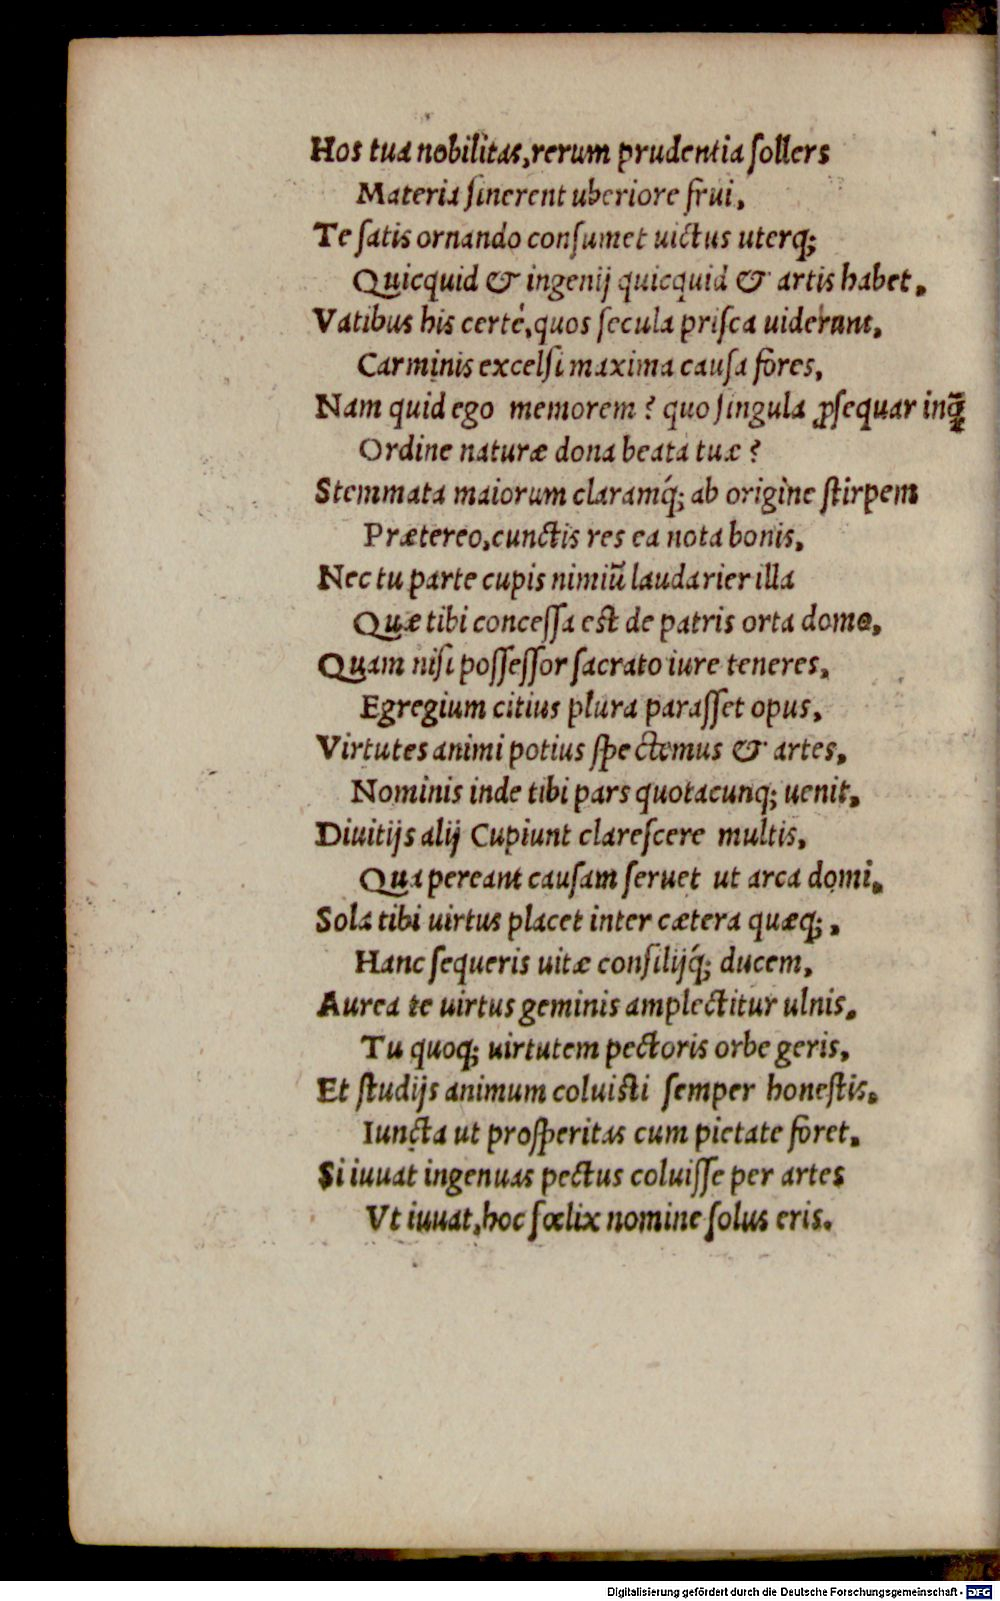 Hos tua nobilitas, rerum prudentia ſollers
Materia ſinerent uberiore frui,
Te ſatis ornando conſumet uictus uterq;
Quicquid & ingenij quicquid & artis habet.
Vatibus his certé, quos ſecula priſca uiderunt,
Carminis excelſi maxima cauſa fores,
Nam quid ego memorem? quo ſingula ꝓſequar inꝗ̃
Ordine naturæ dona beata tuæ?
Stemmata maiorum claramq́; ab origine ſtirpem
Prætereo, cunctis res ea nota bonis,
Nec tu parte cupis nimiũ laudarier illa
Quæ tibi conceſſa est de patris orta domo,
Quam niſi poſſeſſor ſacrato iure teneres,
Egregium citius plura paraſſet opus,
Virtutes animi potius ſpectemus & artes,
Nominis inde tibi pars quotacunq; uenit,
Diuitijs alij Cupiunt clareſcere multis,
Qua pereant cauſam ſeruet ut arca domi.
Sola tibi uirtus placet inter cætera quæq;,
Hanc ſequeris uitæ conſilijq́; ducem,
Aurea te uirtus geminis amplectitur ulnis.
Tu quoq; uirtutem pectoris orbe geris,
Et ſtudijs animum coluisti ſemper honeſtis.
Iuncta ut proſperitas cum pietate foret.
Si iuuat ingenuas pectus coluiſſe per artes
Vt iuuat, hoc fœlix nomine ſolus eris.
Digitalisierung gefördert durch die Deutsche Forschungsgemeinschaft - DFG